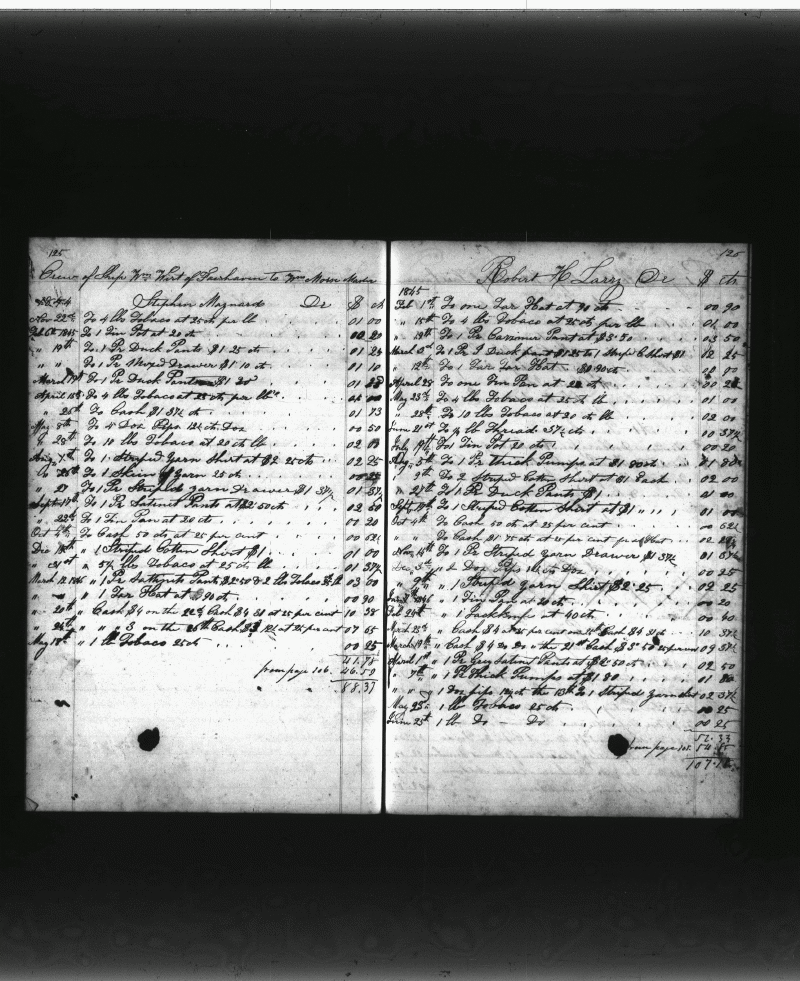 125
Crew of Ship Wm Wirt of Fairhaven to Wm Morse Master
Stephen Maynard Dr $ ct
Nov 22nd To 4 lbs Tobaco at 25 ct per lb 01 00
Feb 6th 1845 To 1 Tin Pot at 20 ct 00 20
" 19th To 1 Pr Duck Pants $1 25 cts 01 25
" " To 1 Pr Mixed Drawer $1 10 ct 01 10
March 19th To 1 Pr Duck Pants $1 20
April 15th To 4 lbs Tobaco at 25 cts per lb 01 00
" 25th To Cash $1 37½ ct 01 73
May 8th To 4 Doz Pips 12½ ct Doz 00 50
" 28th To 10 lbs Tobaco at 20 ct lb 02 00
Aug 7th To 1 Striped Yarn Shirt at $2 25 cts 02 25
To 1 Skein of Yarn 25 ct
" 27 To 1 Pr Striped Yarn Drawer $1 37½ 01 37½
Sept 17th To 1 Pr Satinet Pants at $2 50 cts 02 50
" 22nd To 1 Tin Pan at 20 ct 00 20
Oct 4th To Cash 50 ct at 25 per cent 00 62½
Dec " 1 Striped Cotten Shirt $1 01 00
" 31st " 5½ lbs Tobaco at 25 ct lb 01 37½
March 12 1846 " 1 Pr Pants $2 50 & 2 lbs Tobaco 03 00
" " " 1 Tar Hat at 90 ct 00 90
" 20th " Cash $4 on the 22nd Cash $4 31 at 25 per cent 10 38
" 24th " " 3 on the 26th Cash $3 12½ at 25 per cent 07 65
May 18th " 1 lb Tobaco 25 ct 00 25
41.78
from page 106 46.59
88.37
125
Robert H Larry Dr $ cts
1845
Feb 1st To one Tar Hat at 90 ct 00 90
" 15th To 4 lbs Tobaco at 25 ct per lb 01 00
" 19th To 1 Pr Pant at $3.50 03 50
March 3rd To 1 Pr Duck pant $1 25 to 1 Shirt $1 2 25
" 12th To 1 Tar Hat 90 ct
April 28 To one Tin Pan at 20 ct 00 20
May 23rd To 4 lbs Tobaco at 25 ct lb 01 00
" 28th To 10 lbs Tobaco at 20 ct lb 02 00
June 21st To lb Thread 37½ ct
July 19th To 1 Tin Pot 20 ct 00 20
Aug 5th To 1 Pr thick Pumps at $1 80 ct 01 80
" 9th To 2 Striped Cotten Shirt at $1 Each 02 00
" 27th To 1 Pr Duck Pants $1 01 00
Sept To 1 Striped Cotten Shirt at $1 01 00
Oct 4th To Cash 50 ct at 25 per cent 00 62½
" " To Cash $1 75 ct at 25 per cent
Nov 14th To 1 Pr Striped yarn Drawer $1 37½ 01 37½
Dec 3rd " 2 Doz Pips 12½ ct Doz 00 25
" 9th " 1 Striped yarn Shirt $2.25 02 25
1846 " 1 Tin Pan at 20 ct 00 20
Feb 24th " 1 Jackknife at 40 ct 00 40
March 25th " Cash $4 at 25 per cent Cash $4 10 37½
March 19th " Cash $4 on the 21st Cash $3 50 25 per cent 09 37½
April 1st " 1 Pr Grey Satinet Pants at $2 50 ct 02 50
" 7th " 1 Pr thick Pumps at $1 80 01 80
" " " 1 Doz pips 12½ ct the 13th to 1 Striped yarn 02 37½
May 28th " 1 lb Tobaco 25 ct 00 25
June 25th " 1 lb Do — Do 00 25
52.33
from page 106